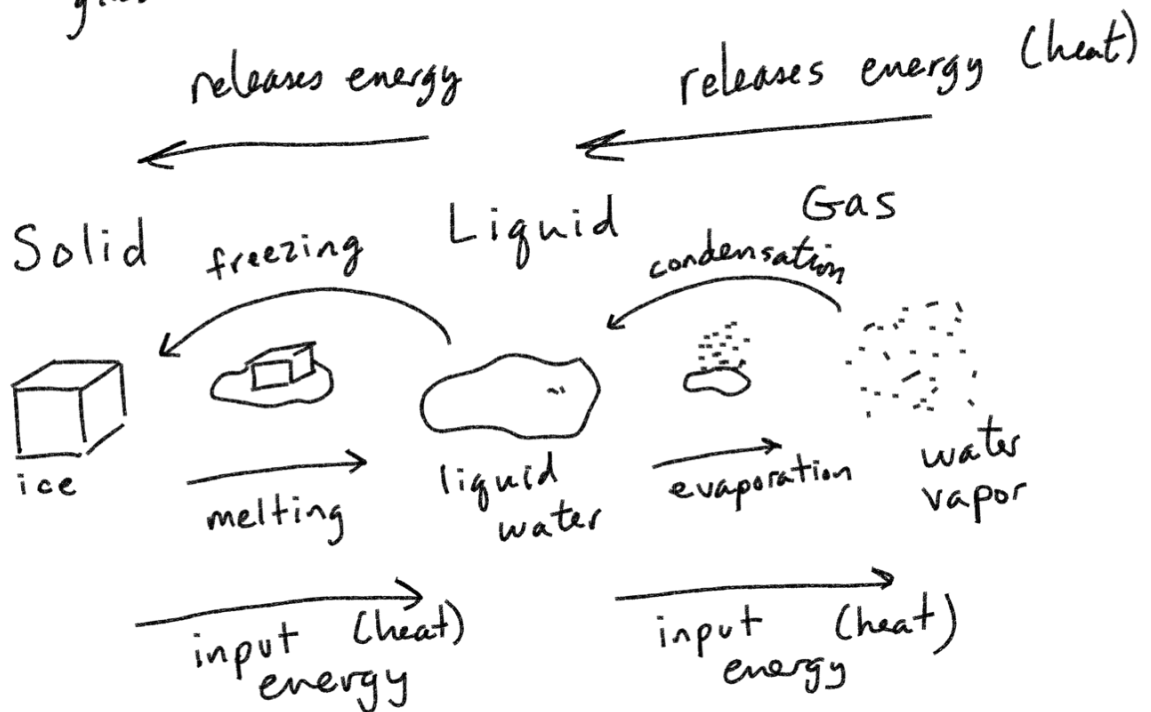 releases energy
releases energy (heat)
Solid
Liquid
Gas
freezing
condensation
ice
melting
liquid
water
evaporation
water
vapor
input (heat)
energy
input (heat)
energy